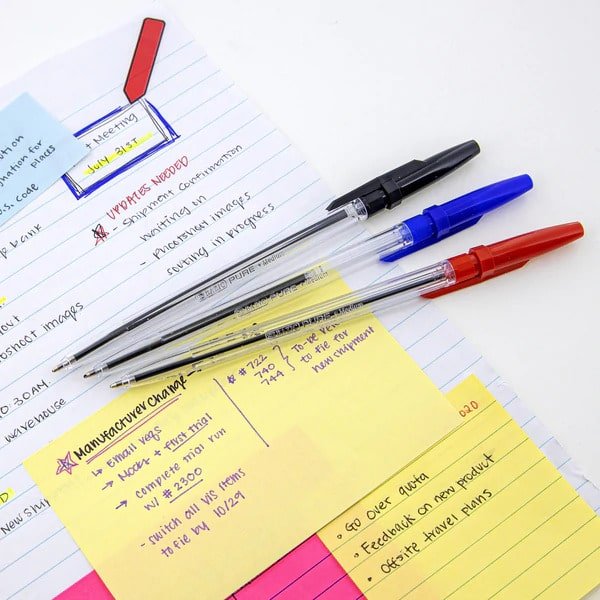 t Meeting
July 31st
UPDATES NEEDED
- Shipment confirmation
waiting on
- Photoshoot images
sorting in progress
for
places
U.S. code
bank
images
10:30 AM
warehouse
New Ship
PURE
Manufacturer Change -
↳ Email regs
→ Mocks + first trial
→ complete trial run
w/ # 2300
- switch all VIS items
to file by 10/29
# 722
740
744
To-be
to file for
new shipment
020
• Go over quota
• Feedback on new product
• Offsite travel plans